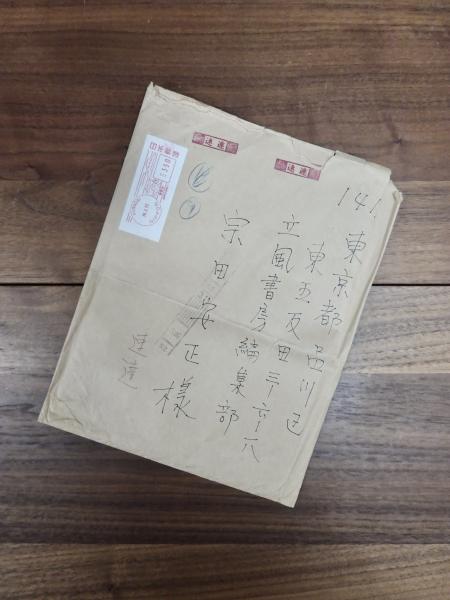 141
東京都品川区
東五反田三ー六ー八
立風書房編集部
宗田安正様
速達
速達
速達